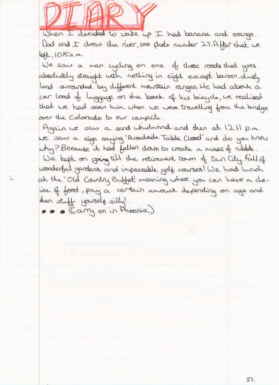 DIARY
When I decided to wake up I had banana and orange.
Dad and I drew the river, one photo number 27. After that we
left, 10:50 a.m.
We saw a man cycling on one of those roads that goes
absolutely straight with nothing in sight except barren, dusty
land surrounded by different mountain ranges. He had about a
car load of luggage on the back of his bicycle, we realised
that we had seen him when we were travelling from the bridge
over the Colorado to our campsite.
Again we saw a sand whirlwind and then at 12.11 p.m.
we saw a sign saying 'Roadside Table Closed' and do you know
why? Because it had fallen down to create a mass of rubble.
We kept on going till the retirement town of Sun City full of
wonderful gardens and impeccable golf courses! We had lunch
at the 'Old Country Buffet' meaning where you can have a cho-
ice of food, pay a certain amount depending on age and
then stuff yourself silly!
(Carry on in Phoenix.)